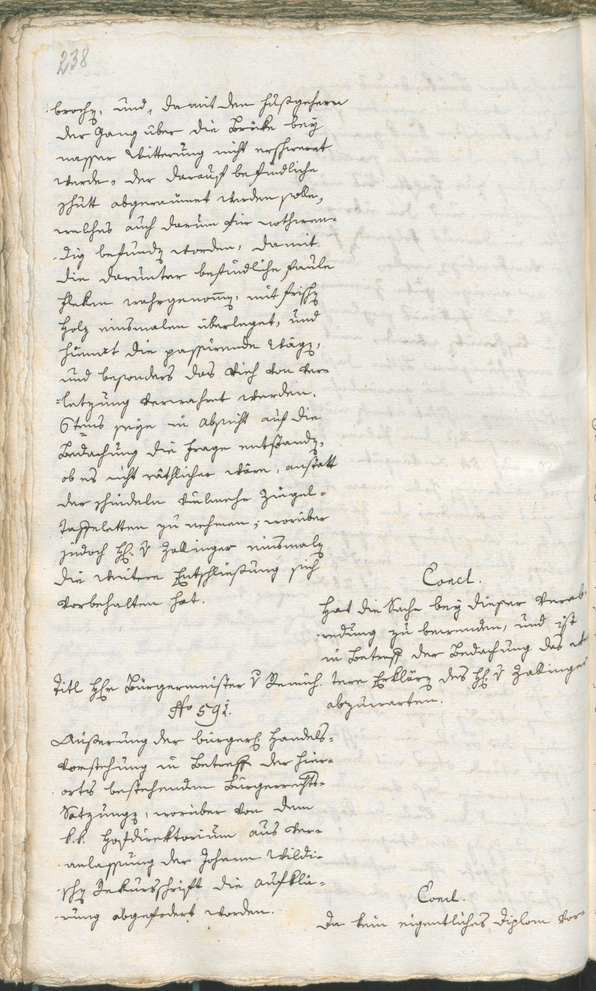 238
brochen, und, damit den Fußgehern
der Gang über die Brüke bey
nasser Witterung nicht erschweret
werde, der darauf befindliche
schütt abgeraumet werden solle,
welches auch darum für nothwen-
dig befunden worden, damit
die darunter befindliche faule
fleken wahrgenommen, mit frischen
Holz einsmalen überleget, und
hiemit die passirende Wägen,
und besonders das Vieh von Ver-
letzung verwahret werden.
6tens seye in Absicht auf die
Bedachung die Frage entstanden,
ob es nicht räthlicher wäre, anstatt
der schindeln vielmehr Ziegel-
taffeletten zu nehmen, worüber
jedoch H. v Zallinger einsmalen
die weitere Entschließung sich
vorbehalten hat.
Concl.
Hat die Sache bey dieser Verab-
redung zu bewenden, und ist
in Betreff der Bedachung das
tere Erklären des H. v Zallinger
abzuwarten.
Titl Herr Bürgermeister v
No 591.
Äußerung der bürgerl. Handels-
vorstehung in Betreff der hier-
orts bestehenden Bürgerrechts-
Satzungen, worüber von dem
k.k. Hofdirektorium aus Ver-
anlassung der Johann Wildi-
schen Rekursschrift die Aufklä-
rung abgefodert worden.
Concl.
Da kein eigentliches Diplom vor-